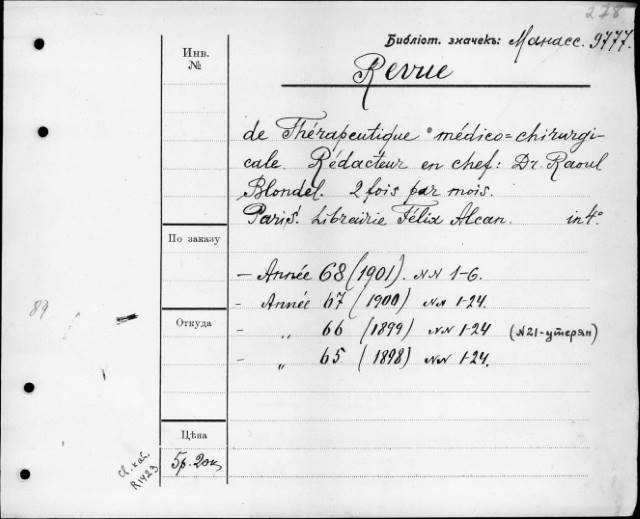 278
Библіот. значекъ: Манасс. 9777.
Инв. №
Revue
de Thérapeutique médico=chirurgi-
cale. Rédacteur en chef: Dr. Raoul
Blondel. 2 fois par mois.
Paris. Librairie Félix Alcan. in 4°
По заказу
- Année 68 (1901). NN 1-6.
- Année 67 (1900) NN 1-24.
89
Откуда
- „ 66 (1899) NN 1-24 (N21-утерян)
- „ 65. (1898) NN 1-24.
Цѣна
5р. 20к
Св. кат.
R1423